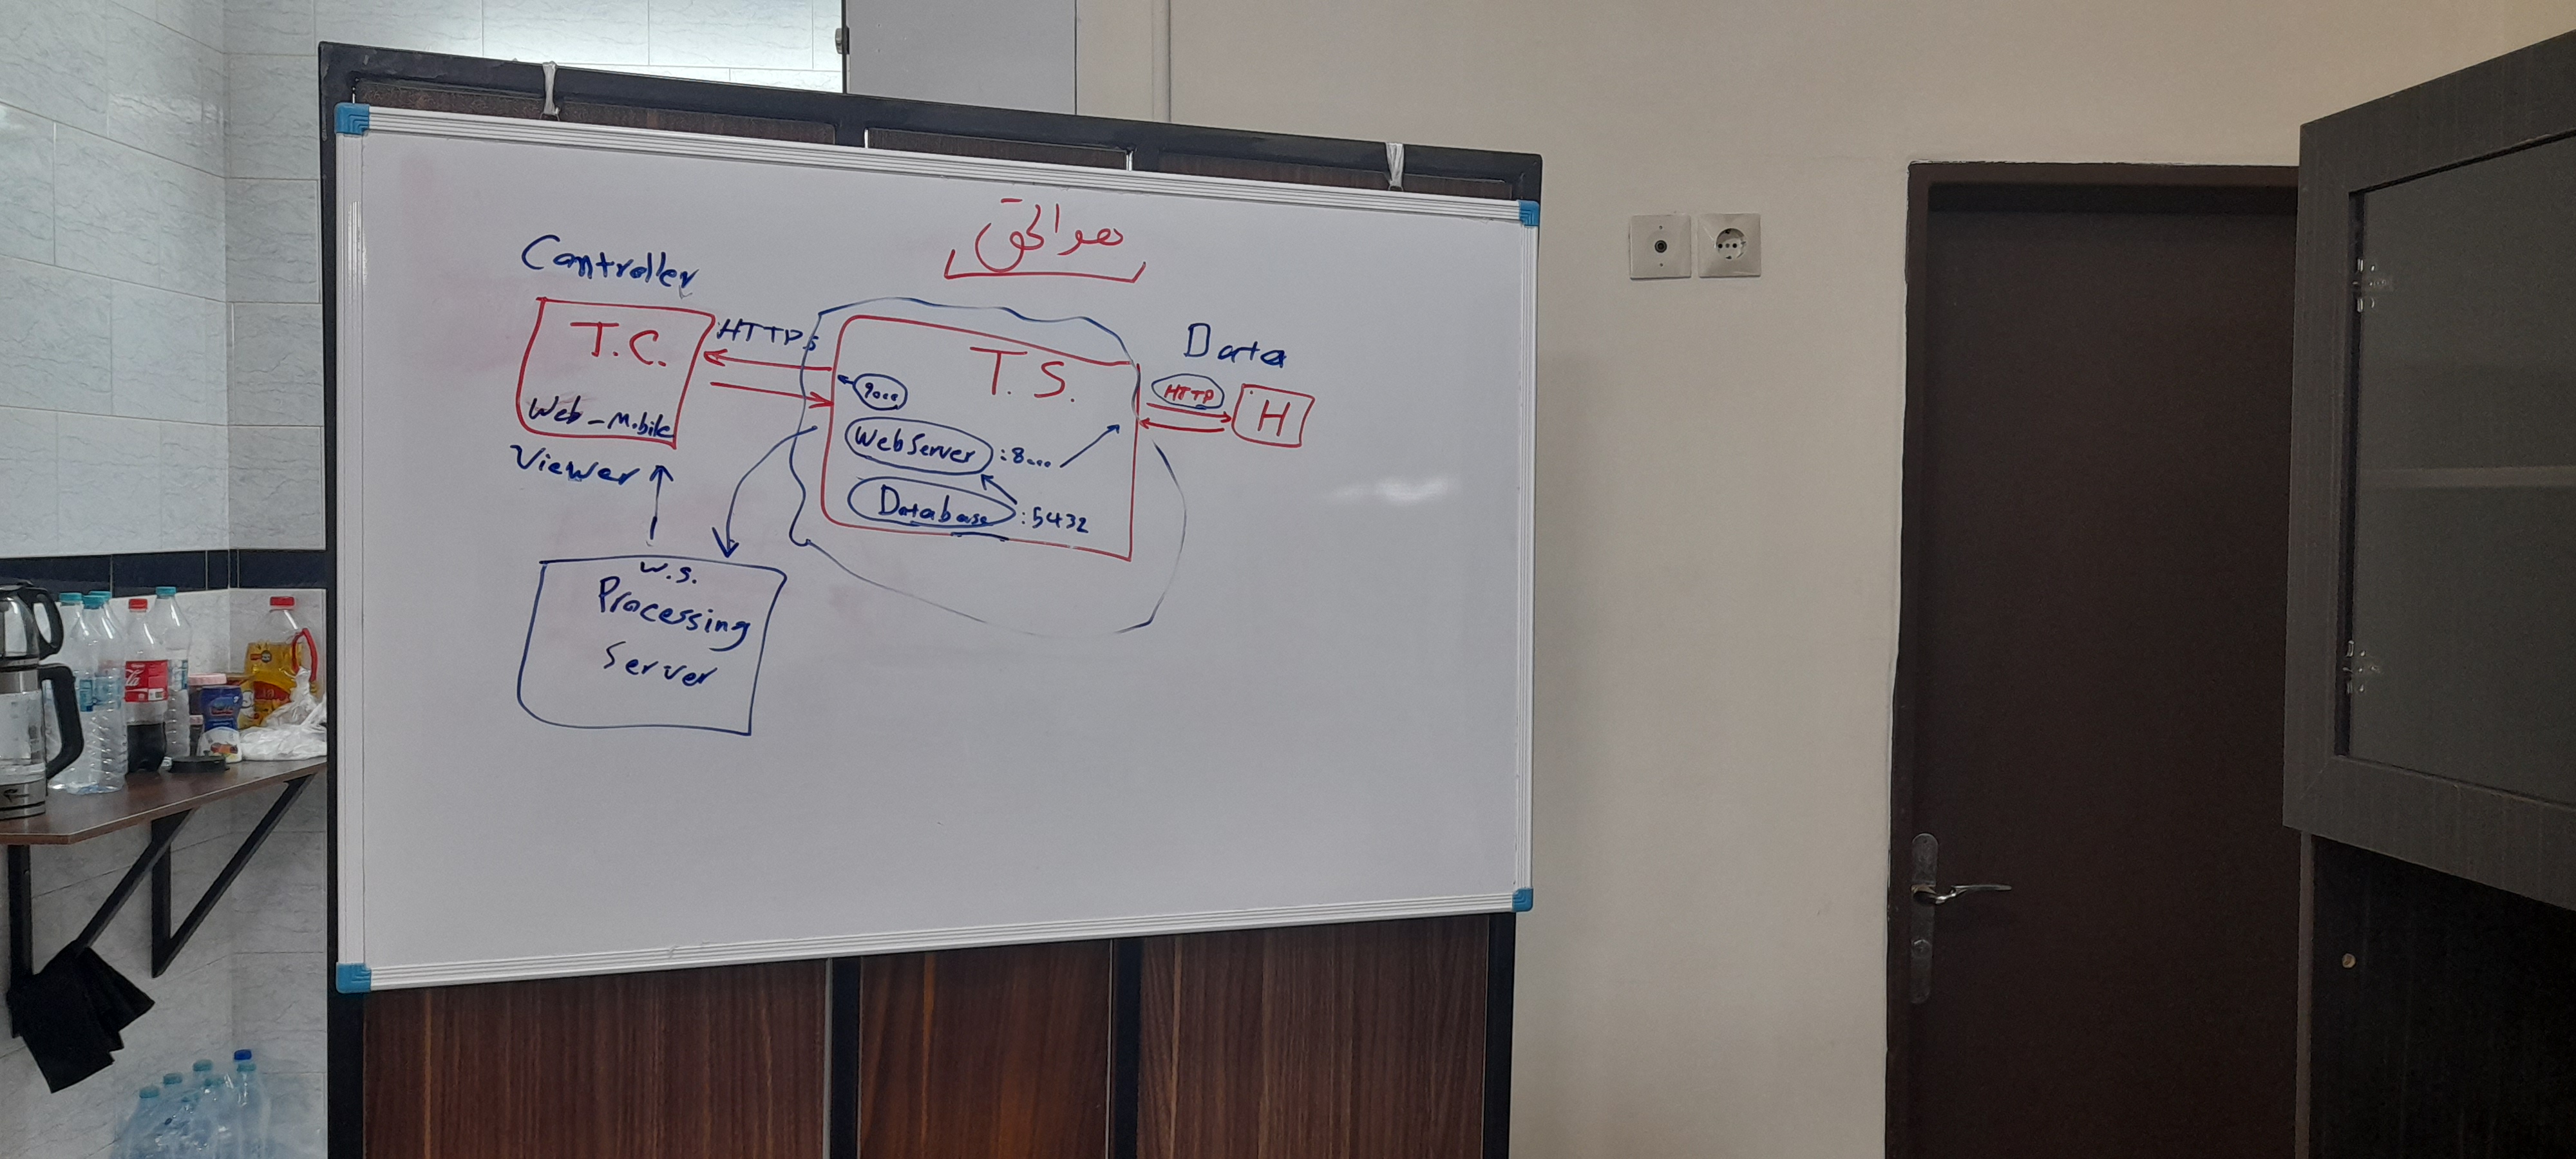 هوالحق
Controller
T.C.
Web-Mobile
Viewer
HTTPs
T.S.
9000
WebServer :8000
Database :5432
Data
HTTP
H
W.S.
Processing
Server